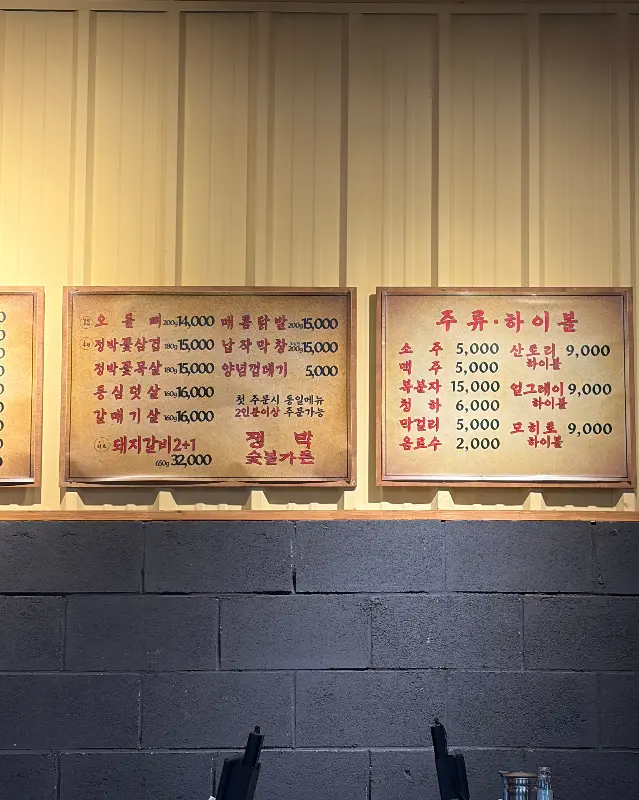 오돌뼈 200g 14,000
정박꽃삼겹 180g 15,000
정박꽃목살 180g 15,000
등심덧살 160g 16,000
갈매기살 160g 16,000
돼지갈비 2+1
650g 32,000
매콤닭발 200g 15,000
납작막창 200g 15,000
양념껍데기 5,000
첫 주문시 동일메뉴
2인분이상 주문가능
정박
숯불가든
주류·하이볼
소주 5,000
맥주 5,000
복분자 15,000
청하 6,000
막걸리 5,000
음료수 2,000
산토리 하이볼 9,000
얼그레이 하이볼 9,000
모히토 하이볼 9,000